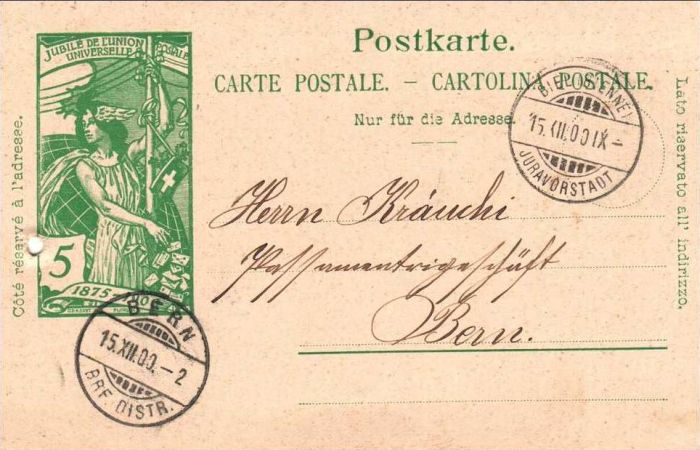 JUBILÉ DE L'UNION
POSTALE
UNIVERSELLE
5
1875-
Postkarte.
CARTE POSTALE. – CARTOLINA POSTALE.
Nur für die Adresse.
Côté réservé à l'adresse.
Lato riservato all' indirizzo.
BIEL (BIENNE)
15.XII.00.IX-
JURAVORSTADT
Herrn Kräuchi
Passamentrigeschäft
Bern.
BERN
15.XII.00.-2
BRF. DISTR.